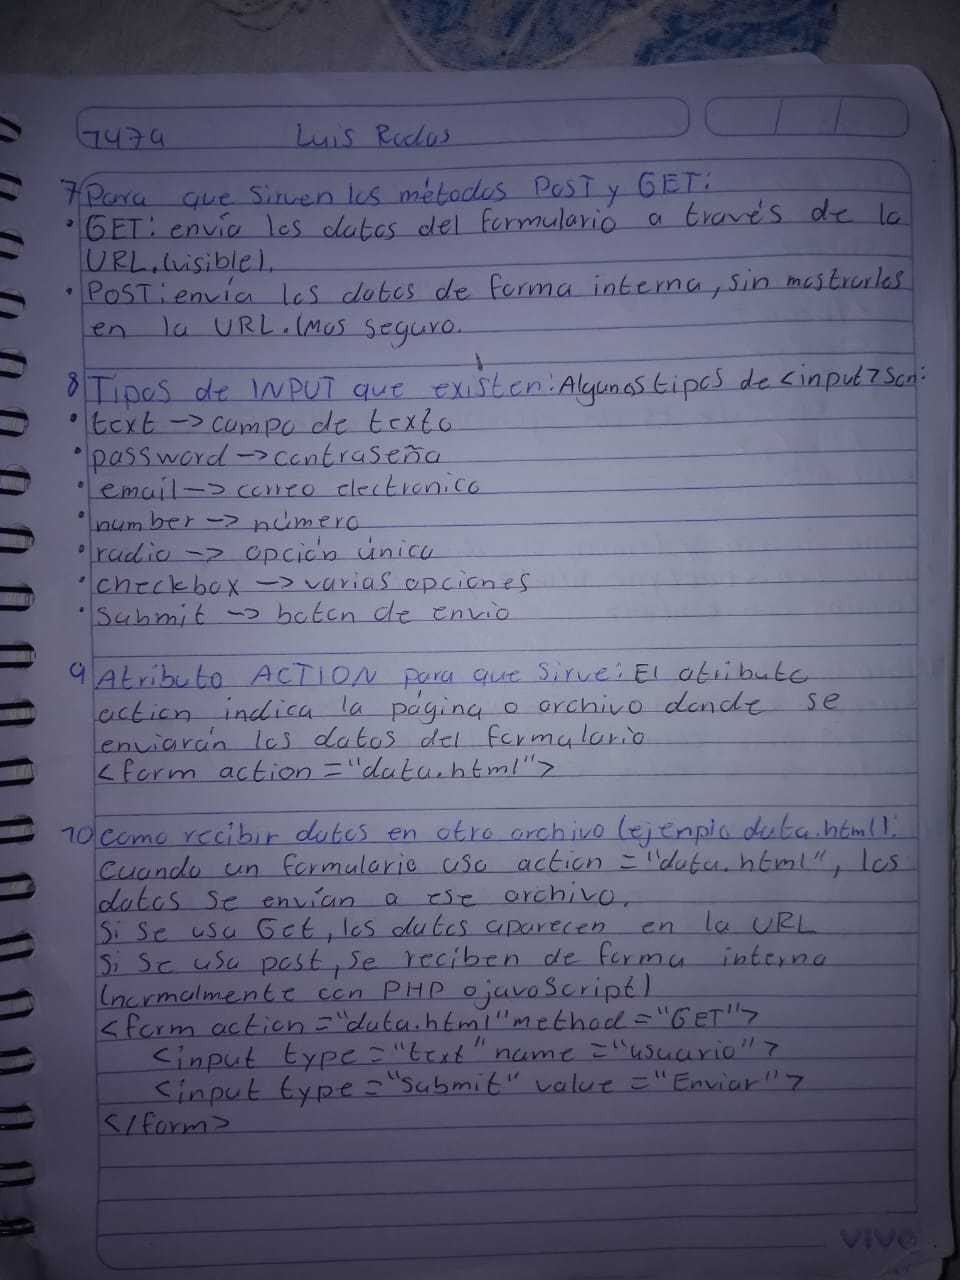 7474 Luis Rodas
7 Para que sirven los métodos POST y GET:
• GET: envía los datos del formulario a través de la
URL. (visible).
• POST: envía los datos de forma interna, sin mostrarlos
en la URL. (Mas seguro.
8 Tipos de INPUT que existen: Algunos tipos de <input> son:
• text -> campo de texto
• password -> contraseña
• email -> correo electronico
• number -> número
• radio -> opción única
• checkbox -> varias opciones
• submit -> boton de envio
9 Atributo ACTION para que sirve: El atributo
action indica la página o archivo donde se
enviarán los datos del formulario
<form action="data.html">
10 como recibir datos en otro archivo (ejenplo data.html):
Cuando un formulario usa action="data.html", los
datos se envían a ese archivo.
Si se usa Get, los datos aparecen en la URL
Si se usa post, se reciben de forma interna
(normalmente con PHP o javaScript)
<form action="data.html" method="GET">
<input type="text" name="usuario">
<input type="submit" value="Enviar">
</form>
VIVO